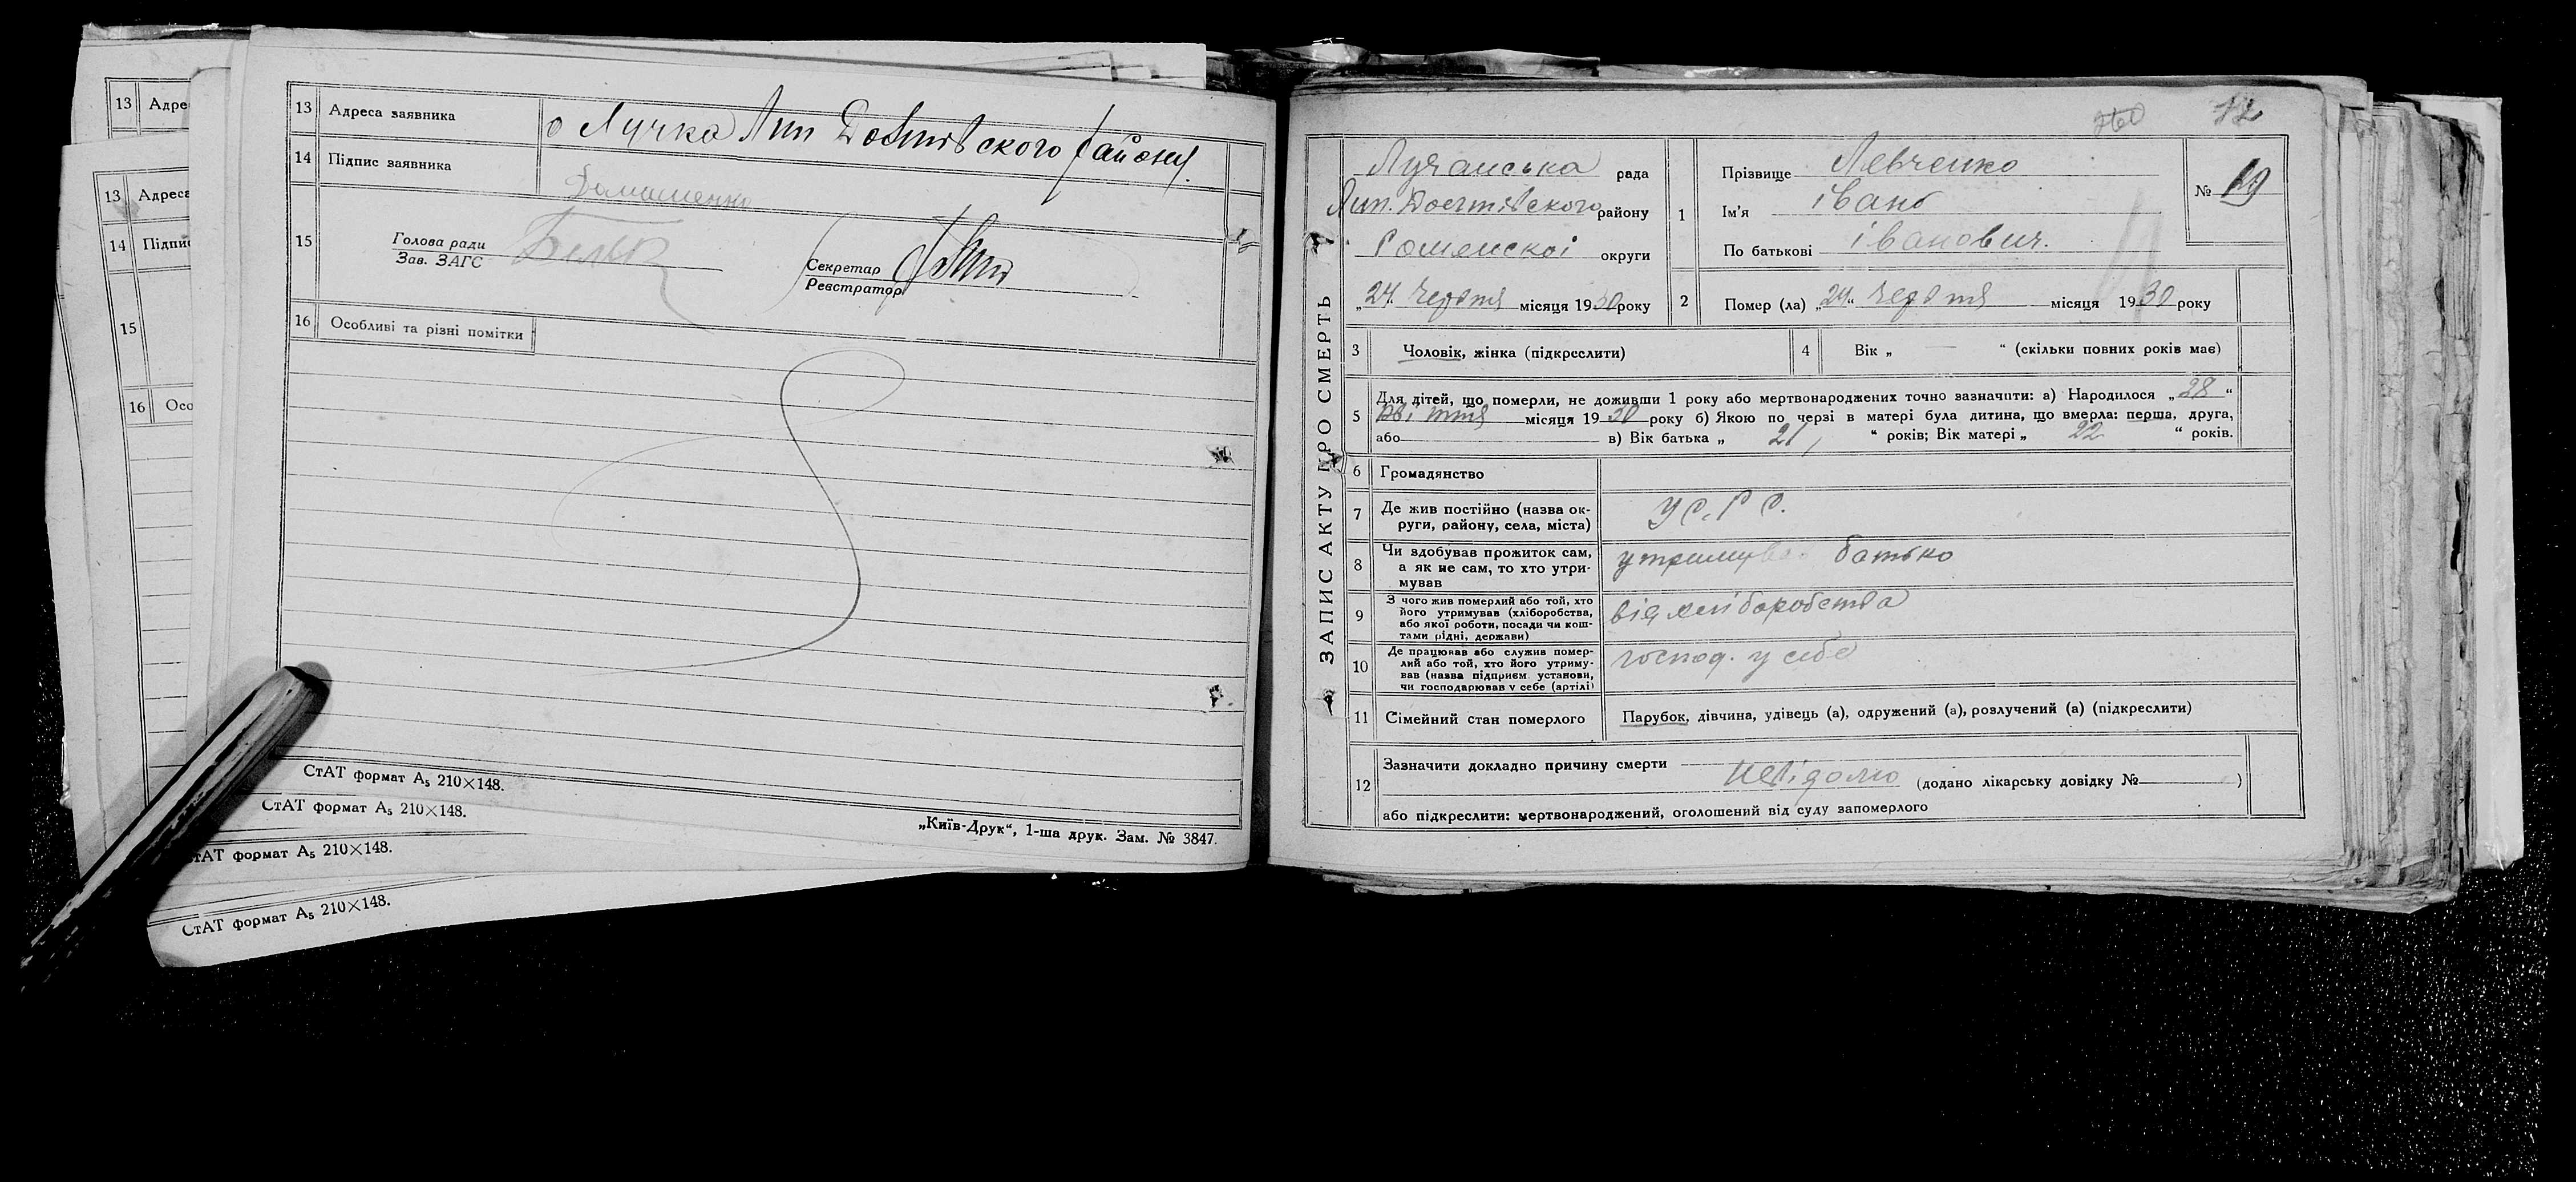 13 Адре
13 Адреса
14 Підпис
15
16 Осо
13 Адреса заявника о Лучка Лип Долинського району
14 Підпис заявника
Домашенко
15 Голова ради
Зав. ЗАГС
Секретар
Реєстратор
16 Особливі та різні помітки
СтАТ формат А₅ 210×148.
СтАТ формат А₅ 210×148.
СтАТ формат А₅ 210×148.
СтАТ формат А₅ 210×148.
„Київ-Друк“, 1-ша друк. Зам. № 3847.
12
ЗАПИС АКТУ ПРО СМЕРТЬ
Лучанська рада
Лип. району
Роменскої округи
„24. червня місяця 1930 року
1 Прізвище Левченко
Ім'я івано
По батькові іванович.
№ 19
2 Помер (ла) „24“ червня місяця 1930 року
3 Чоловік, жінка (підкреслити)
4 Вік „ — “ (скільки повних років має)
5 Для дітей, що померли, не доживши 1 року або мертвонароджених точно зазначити: а) Народилося „28“
квітня місяця 1930 року б) Якою по черзі в матері була дитина, що вмерла: перша, друга,
або в) Вік батька „ 21, “ років; Вік матері „ 22 “ років.
6 Громадянство
7 Де жив постійно (назва округи, району, села, міста) УС.Р.С.
8 Чи здобував прожиток сам, а як не сам, то хто утримував
утримував батько
9 З чого жив померлий або той, хто його утримував (хліборобства, або якої роботи, посади чи коштами рідні, держави)
від хліборобства
10 Де працював або служив померлий або той, хто його утримував (назва підприєм. установи, чи господарював у себе (артілі)
господ. у себе
11 Сімейний стан померлого Парубок, дівчина, удівець (а), одружений (а), розлучений (а) (підкреслити)
12 Зазначити докладно причину смерти
невідомо (додано лікарську довідку № )
або підкреслити: мертвонароджений, оголошений від суду запомерлого